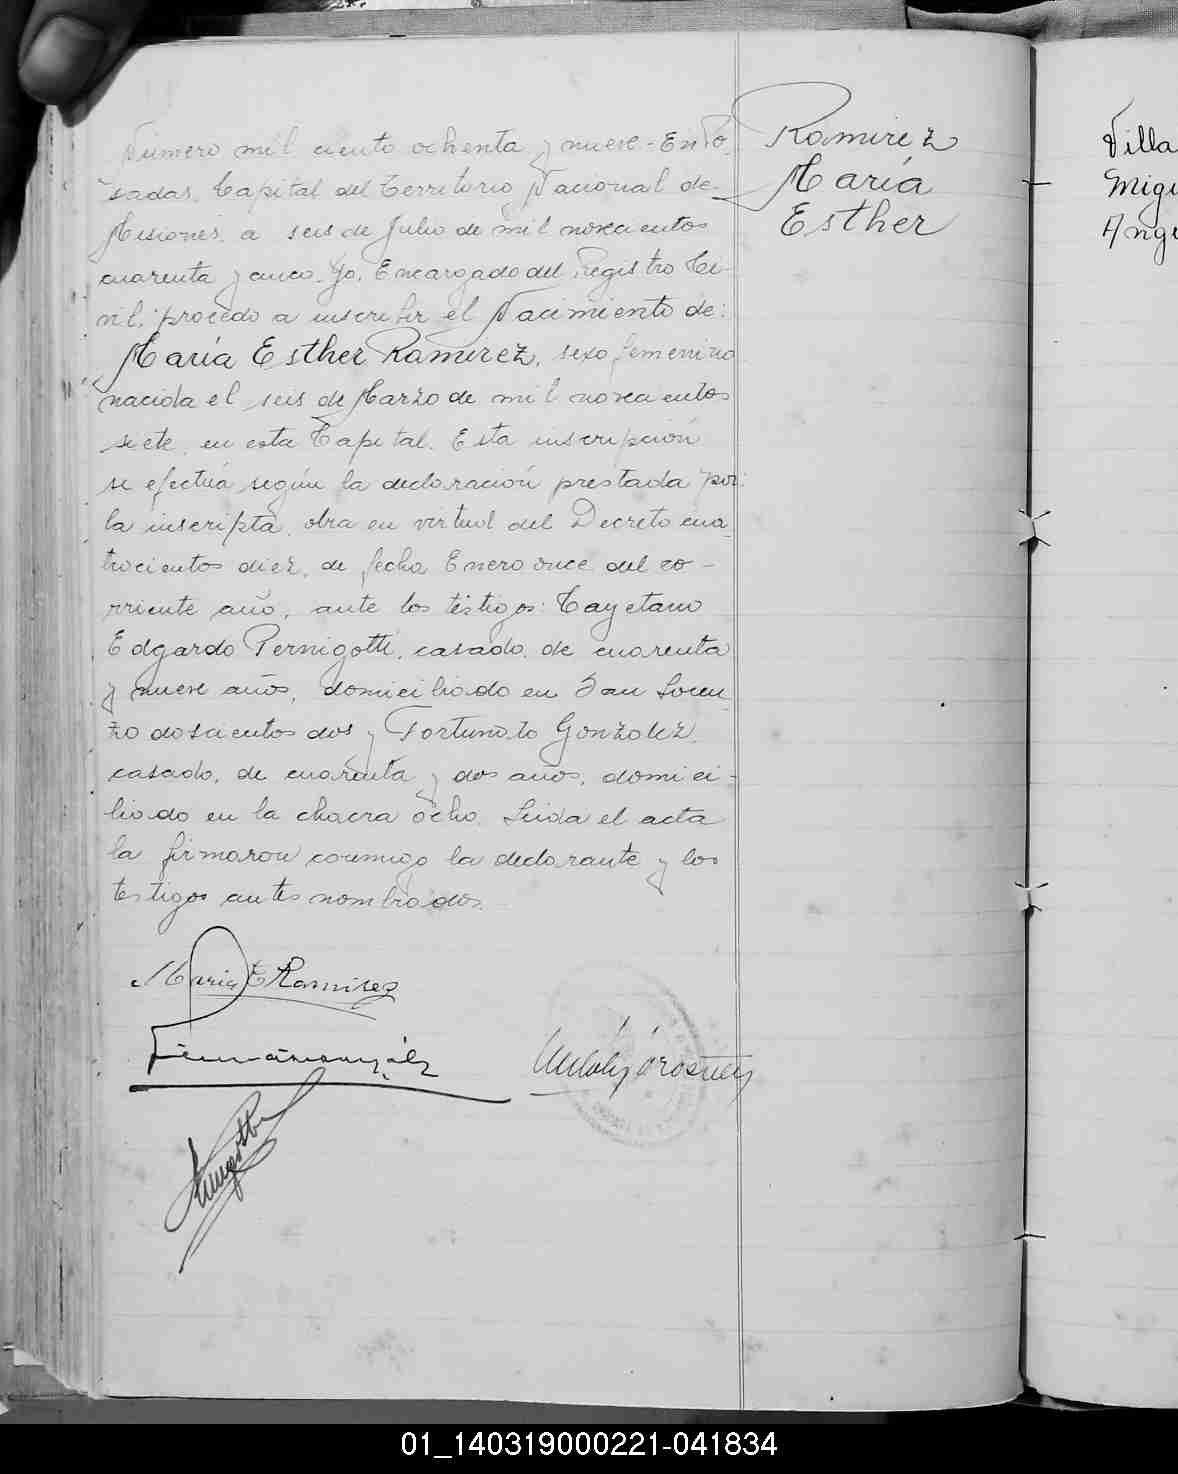 Número mil ciento ochenta y nueve - En Po-
sadas, Capital del Territorio Nacional de
Misiones, a seis de Julio de mil novecientos
cuarenta y cinco. Yo, Encargado del Registro Ci-
vil, procedo a inscribir el Nacimiento de:
María Esther Ramirez, sexo femenino
nacida el seis de Marzo de mil novecientos
siete, en esta Capital. Esta inscripción
se efectúa según la declaración prestada por:
la inscripta, obra en virtud del Decreto cua-
trocientos diez, de fecha Enero once del co-
rriente año, ante los testigos: Cayetano
Edgardo Pernigotti, casado, de cuarenta
y nueve años, domiciliado en San Loren-
zo doscientos dos y Fortunato Gonzalez,
casado, de cuarenta y dos años, domici-
liado en la chacra ocho. Leida el acta
la firmaron conmigo la declarante y los
testigos antes nombrados.
Maria E Ramirez
Ramirez
María
Esther
Villa
Migu
Ange
01_140319000221-041834